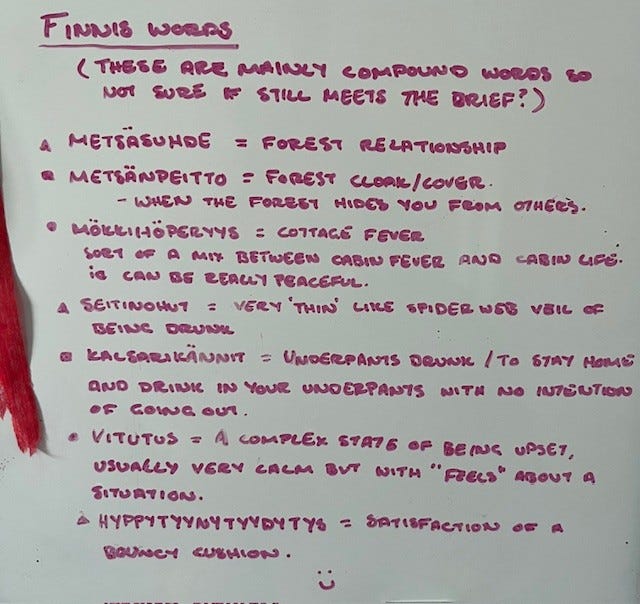 FINNIS WORDS
(THESE ARE MAINLY COMPOUND WORDS SO
NOT SURE IF STILL MEETS THE BRIEF?)
METSÄSUHDE = FOREST RELATIONSHIP
METSÄNPEITTO = FOREST CLOAK/COVER.
- WHEN THE FOREST HIDES YOU FROM OTHERS.
MÖKKIHÖPERYYS = COTTAGE FEVER
SORT OF A MIX BETWEEN CABIN FEVER AND CABIN LIFE.
IS CAN BE REALLY PEACEFUL.
SEITINOHUT = VERY 'THIN' LIKE SPIDER WEB VEIL OF
BEING DRUNK
KALSARIKÄNNIT = UNDERPANTS DRUNK / TO STAY HOME
AND DRINK IN YOUR UNDERPANTS WITH NO INTENTION
OF GOING OUT.
VITUTUS = A COMPLEX STATE OF BEING UPSET,
USUALLY VERY CALM BUT WITH "FEELS" ABOUT A
SITUATION.
HYPPYTYYNYTYYDYTYS = SATISFACTION OF A
BOUNCY CUSHION.